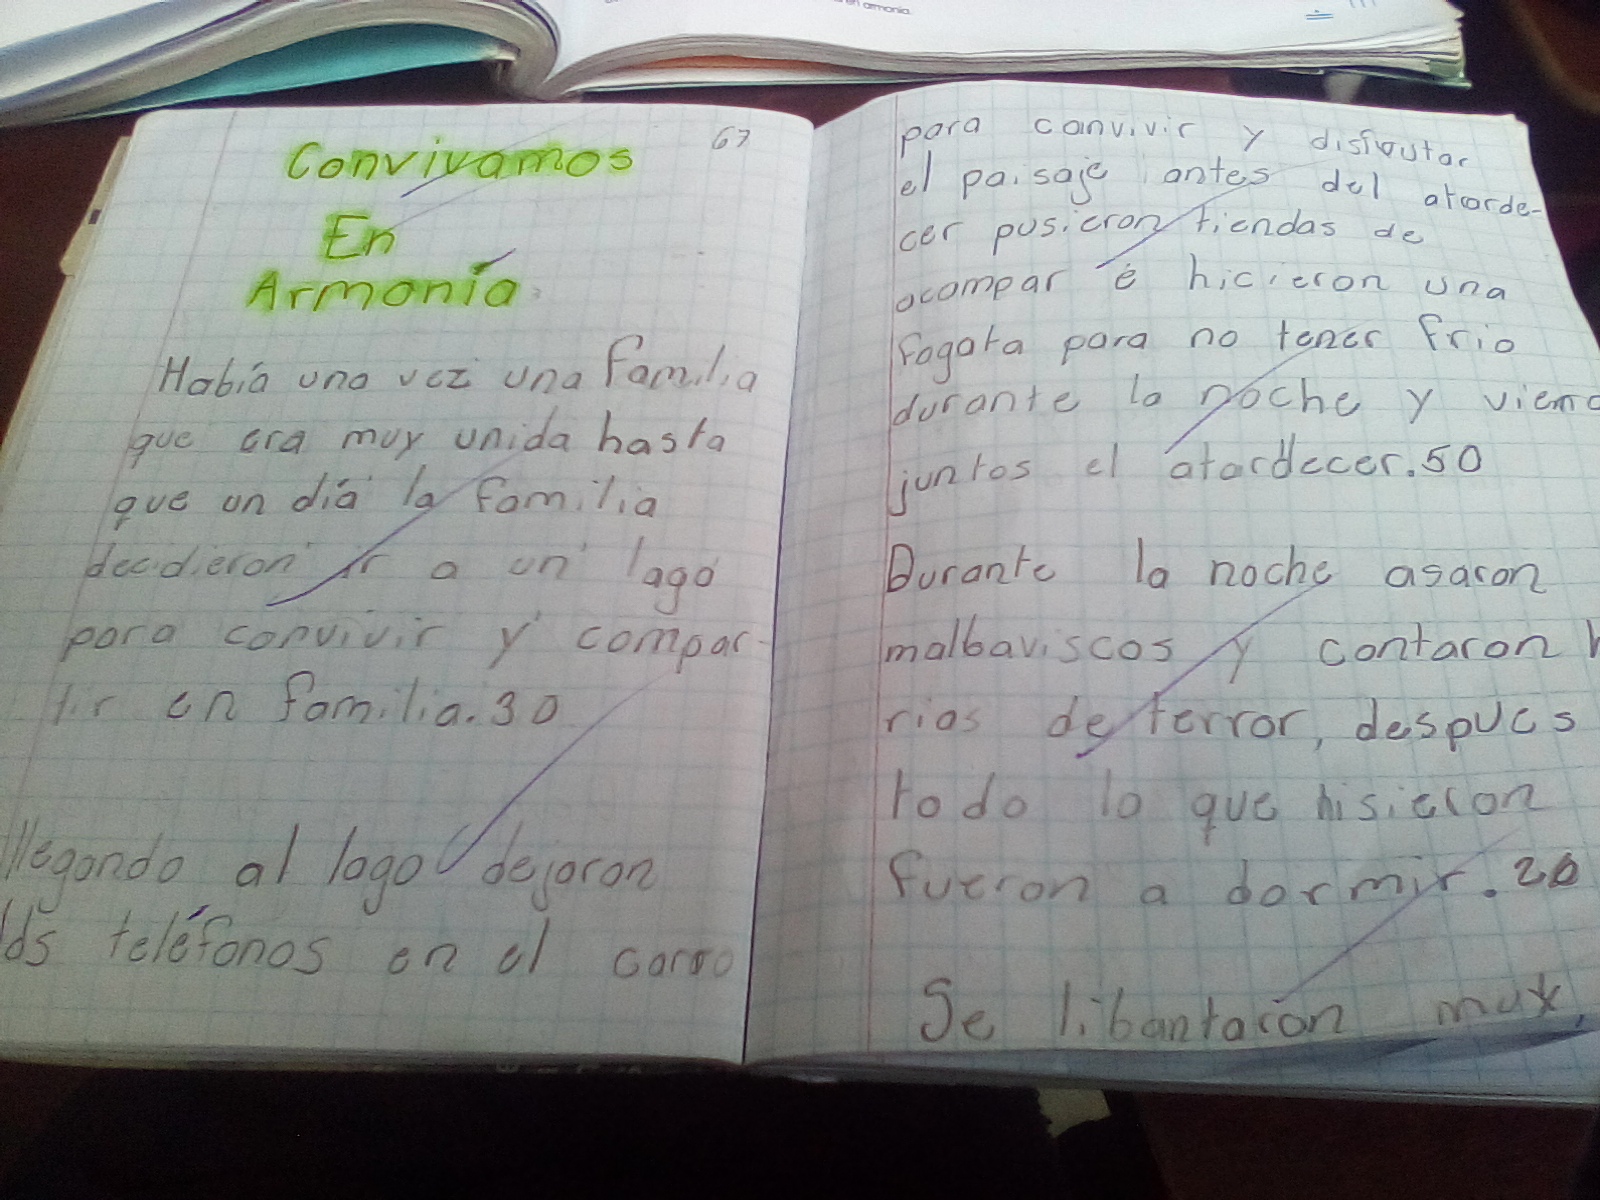 en armonía.
67
Convivamos
En
Armonía
Había una vez una familia
que era muy unida hasta
que un día la familia
decidieron ir a un lago
para convivir y compar-
tir en familia.30
llegando al lago dejaron
los teléfonos en el carro
para convivir y disfrutar
el paisaje antes del atarde-
cer pusieron tiendas de
acampar é hicieron una
fogata para no tener frio
durante la noche y
juntos el atardecer.50
Durante la noche asaron
malbaviscos y contaron
rias de terror, despues
todo lo que hisieron
fueron a dormir.20
Se libantaron muy